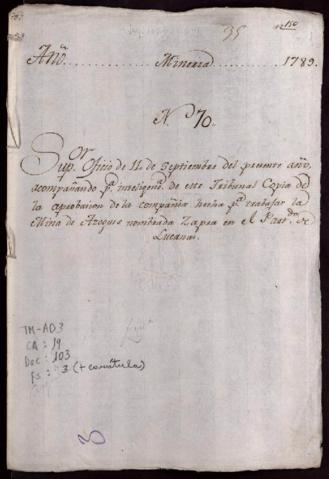 35
nº 150
Añ. Mineria 1789.
N. 70.
Supor. Oficio de 11 de Septiembre del presente año,
acompañando pa. inteligena. de este Tribunal Copia de
la aprobacion de la compañia hecha pa. trabajar la
Mina de Azogue nombrada Zapea en el Partdo. de
Lucanas.
TM-AD3
CA : 19
Doc : 103
Fs : 3 (+ carátula)